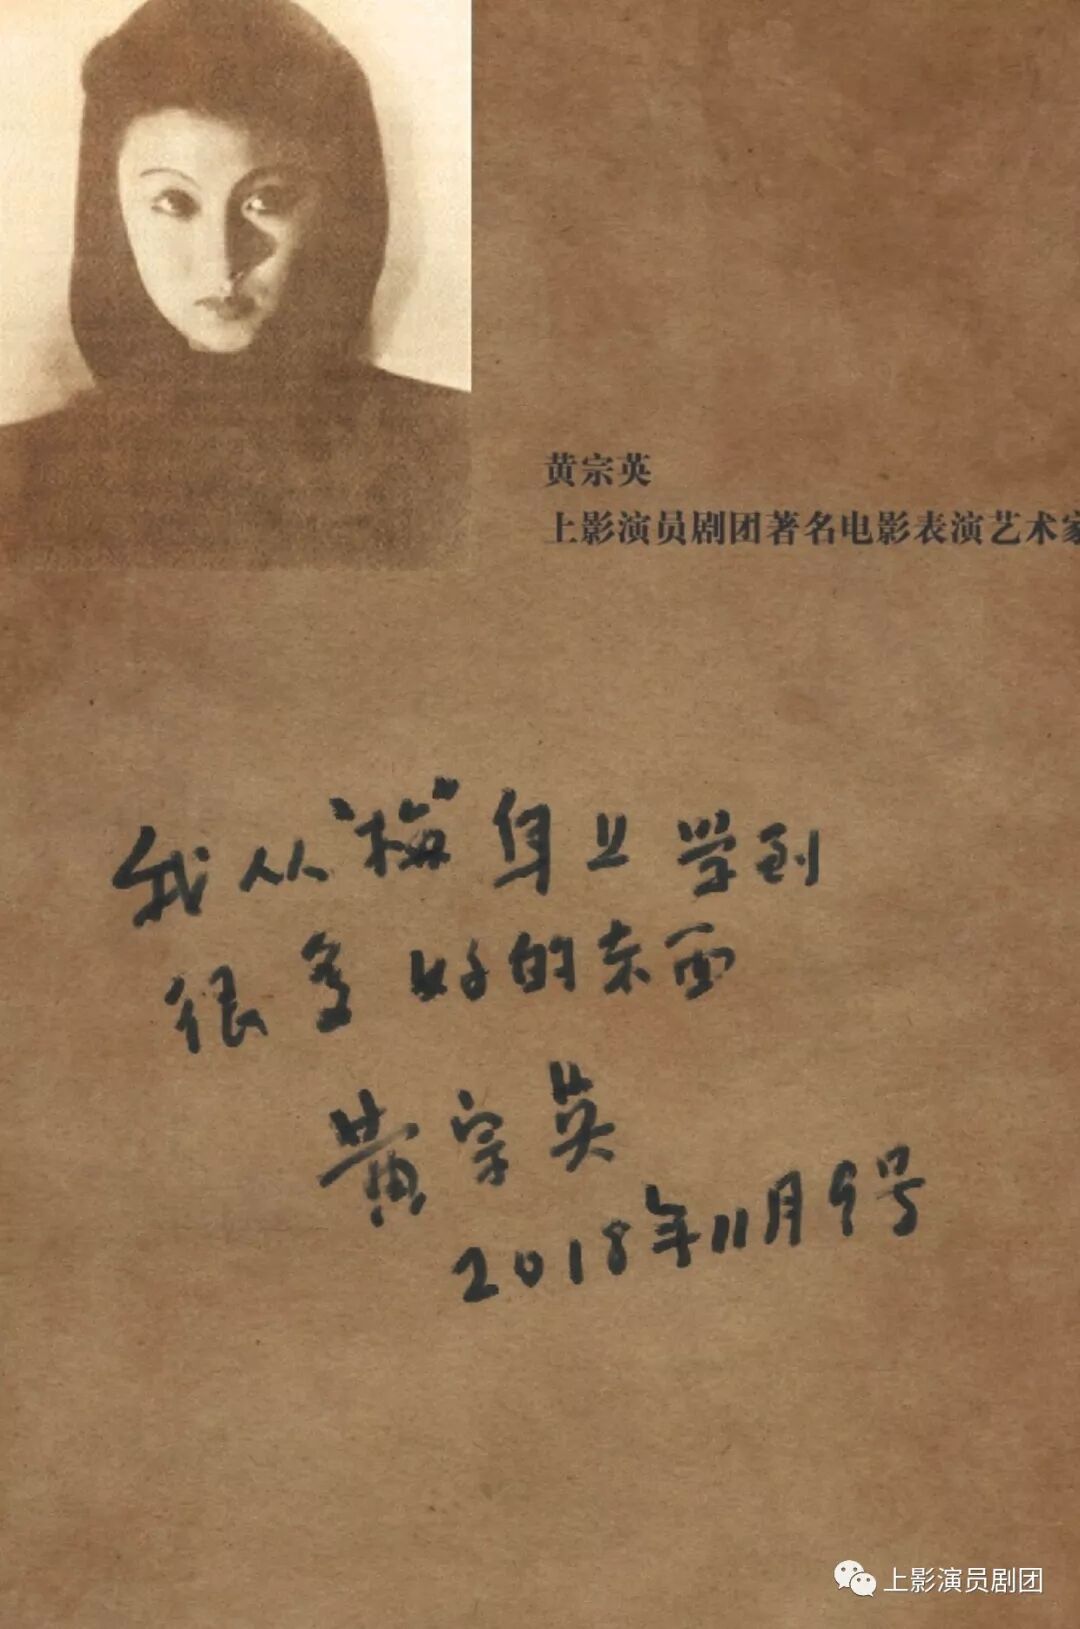 黄宗英
上影演员剧团著名电影表演艺术家
我从"梅"身上学到
很多好的东西
黄宗英
2018年11月9号
上影演员剧团